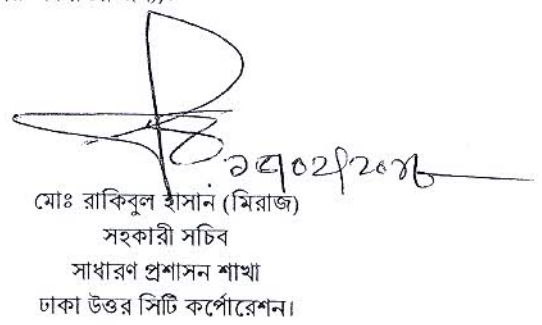 মোঃ রাকিবুল হাসান (মিরাজ)
সহকারী সচিব
সাধারণ প্রশাসন শাখা
ঢাকা উত্তর সিটি কর্পোরেশন।